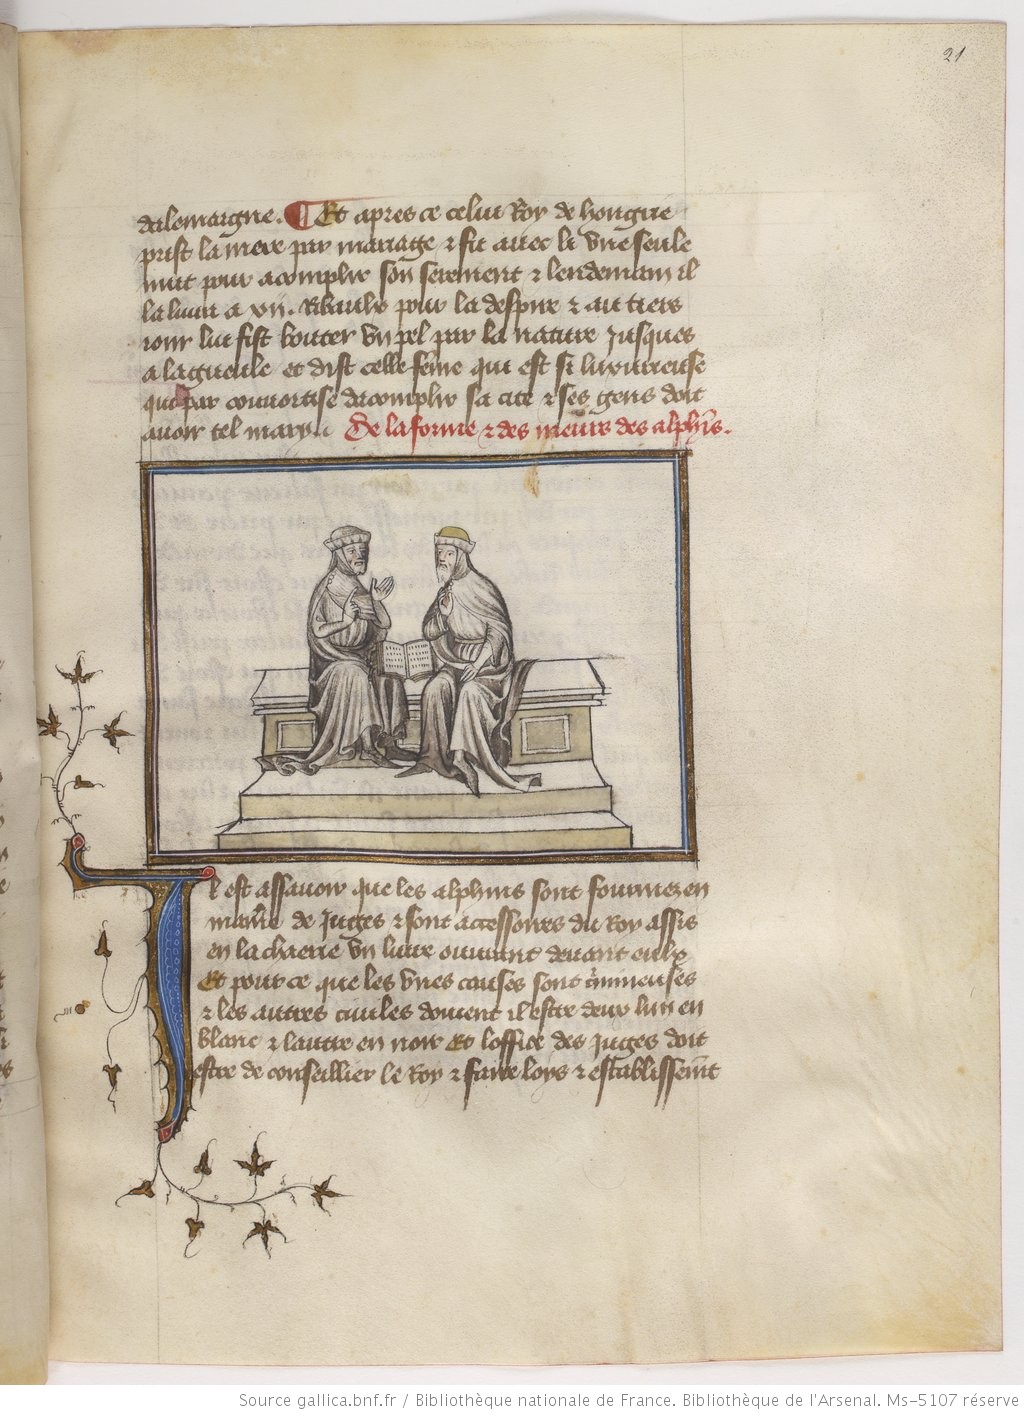 21
dalemaigne. Et apres ce celui Roy de hongrie
prist la mere par mariage & fit avec li une seule
nuit pour acomplir son serement & lendemain il
la livra a xii. Ribauls pour la despire & au tiers
iour lui fist bouter un pel par la nature jusques
a la gueule et dist celle feme qui est si luxurieuse
que par couvoitise dacomplir sa cite & ses gens doit
avoir tel mary.. De la forme & des meurs des alphins.
Il est assavoir que les alphins sont fourmez en
maniere de Juges & sont accessoires du Roy assis
en la chaere un livre ouvrant devant eulx
Et pour ce que les unes causes sont crimineuses
& les autres civiles doivent il estre deux lun en
blanc & lautre en noir Et loffice des Juges doit
estre de conseillier le Roy & faire loys & establissemt
Source gallica.bnf.fr / Bibliothèque nationale de France. Bibliothèque de l'Arsenal. Ms-5107 réserve